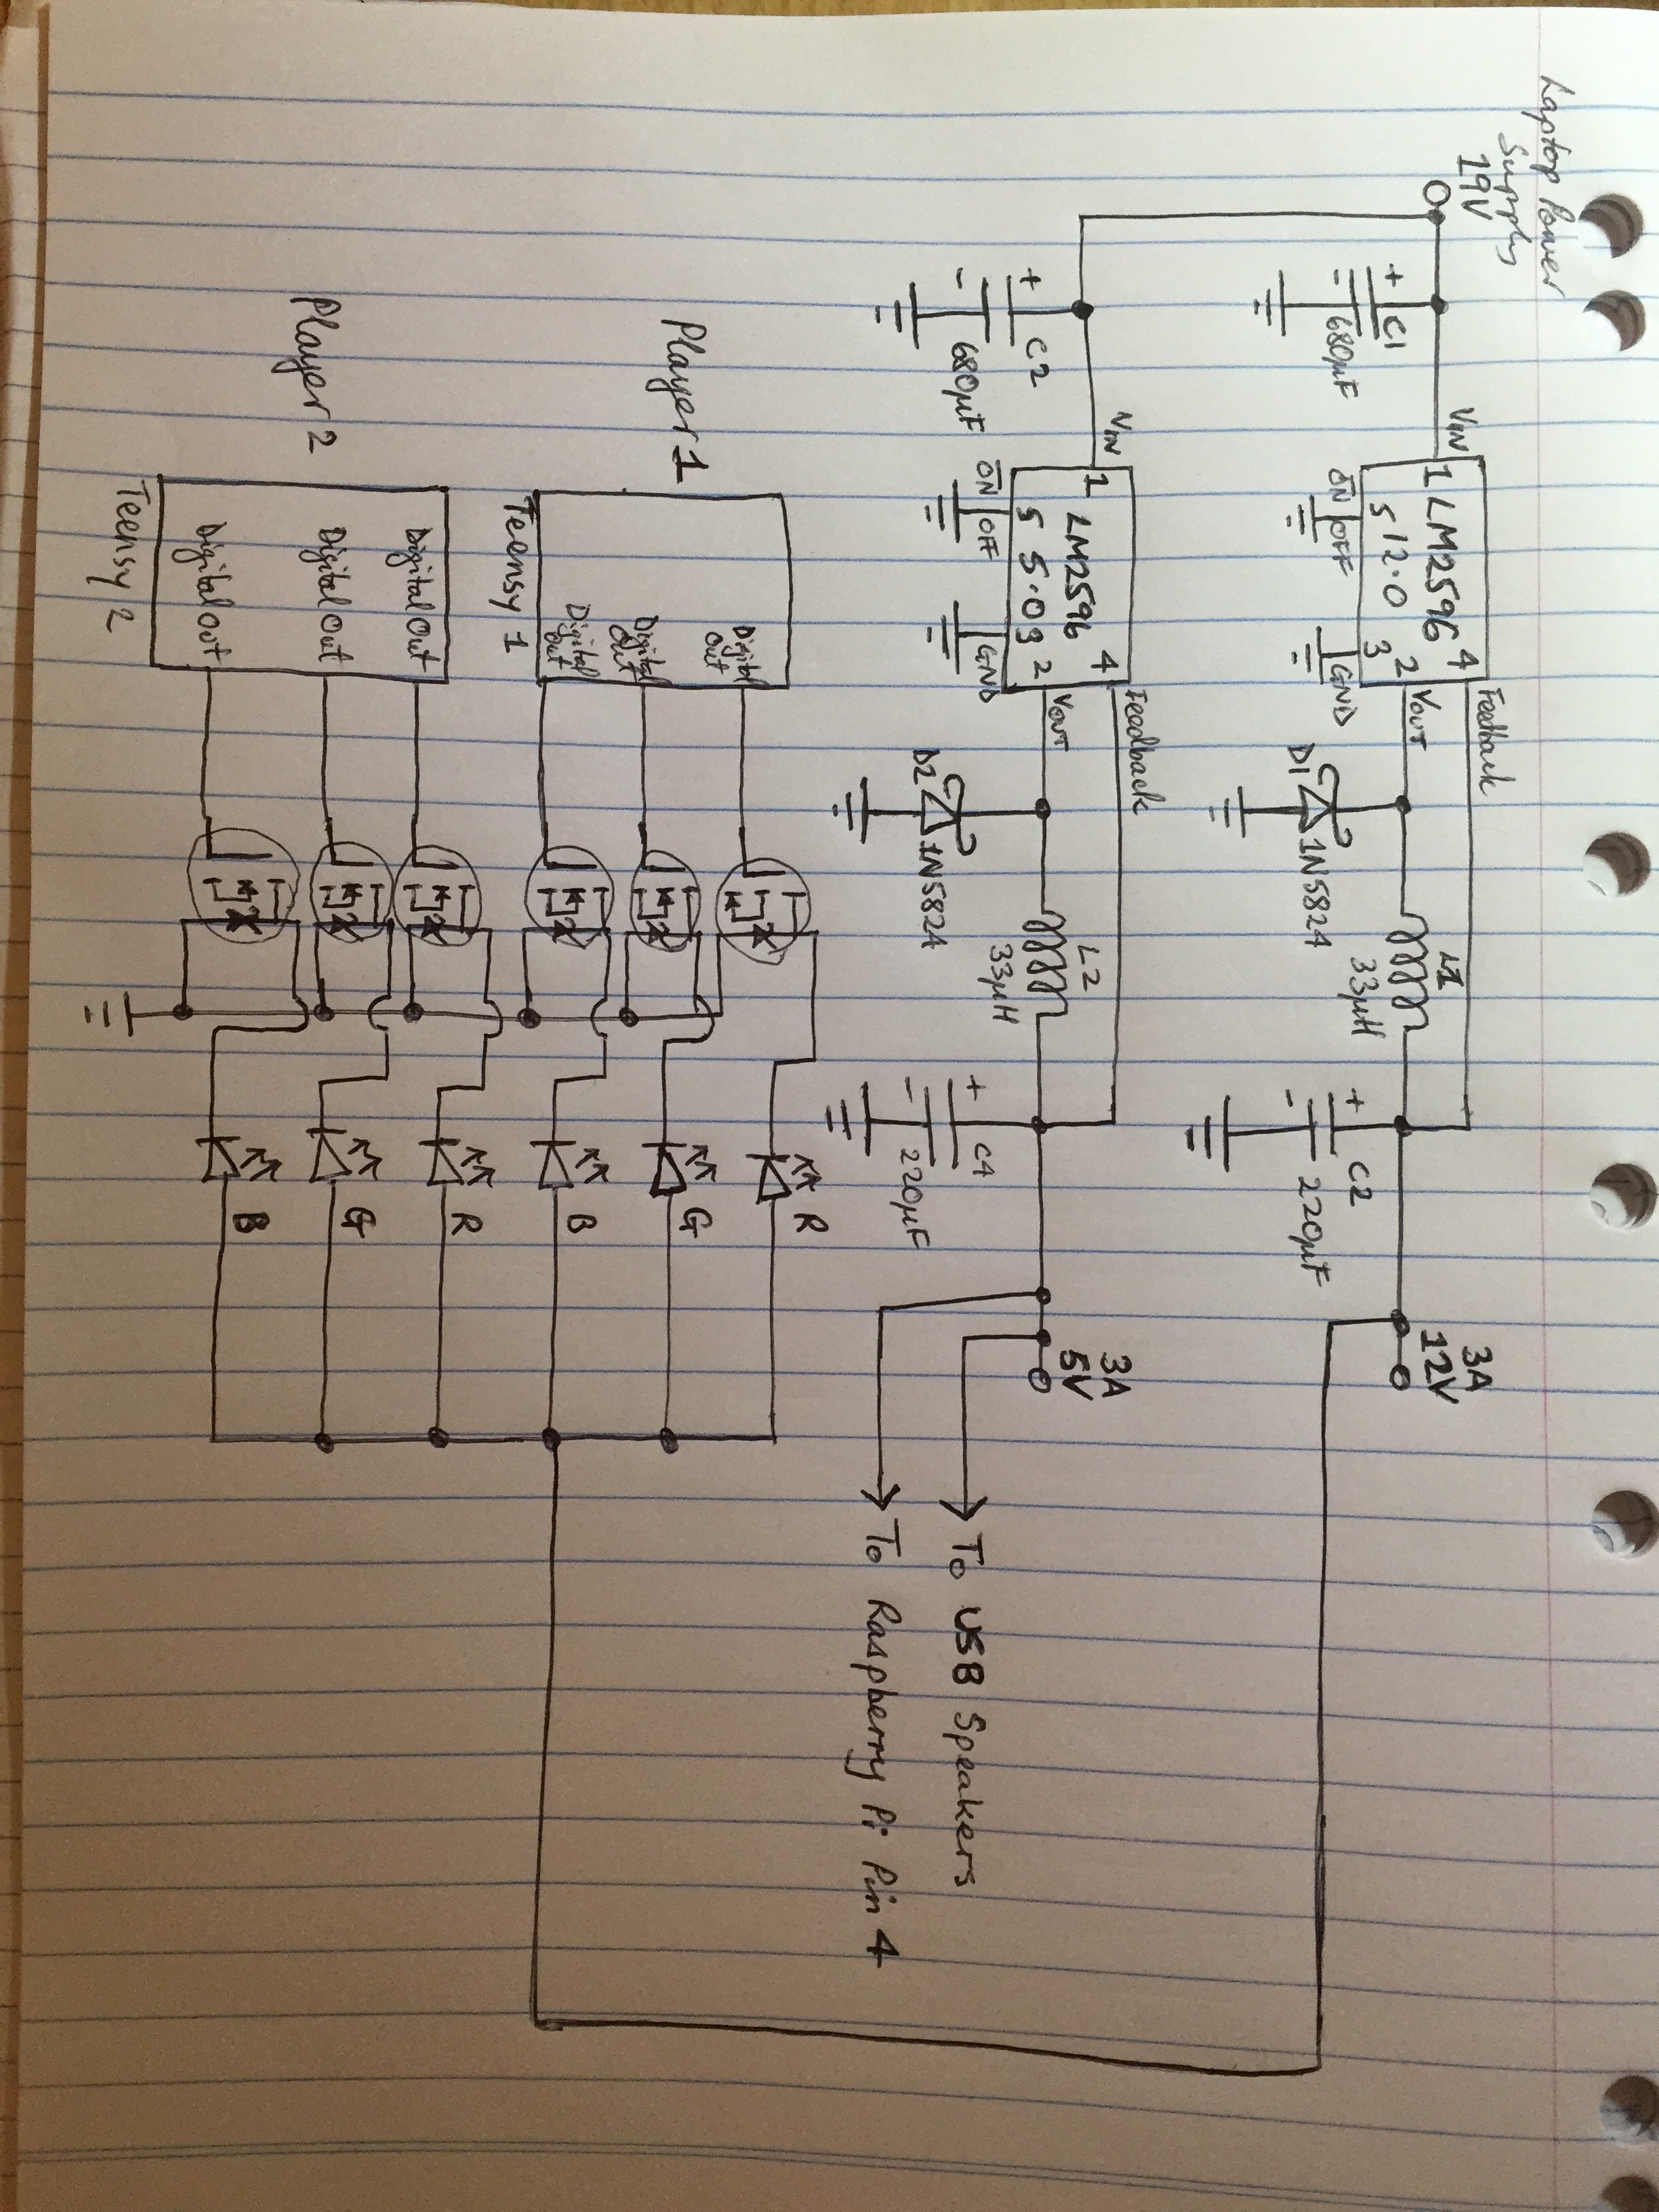 Laptop Power
Supply
19V
+
C1
-
680µF
VIN
1 LM2596 4
5 12.0
3
2
ON/OFF
GND
Feedback
VOUT
D1
1N5824
L1
33µH
+
C2
-
220µF
3A
12V
+
C2
-
680µF
VIN
1 LM2596 4
5 5.0 3 2
ON/OFF
GND
Feedback
VOUT
D2
1N5824
L2
33µH
+
C4
-
220µF
3A
5V
To USB Speakers
To Raspberry Pi Pin 4
Player 1
Digital
Out
Digital
Out
Digital
Out
Teensy 1
R
G
B
Player 2
Digital Out
Digital Out
Digital Out
Teensy 2
R
G
B